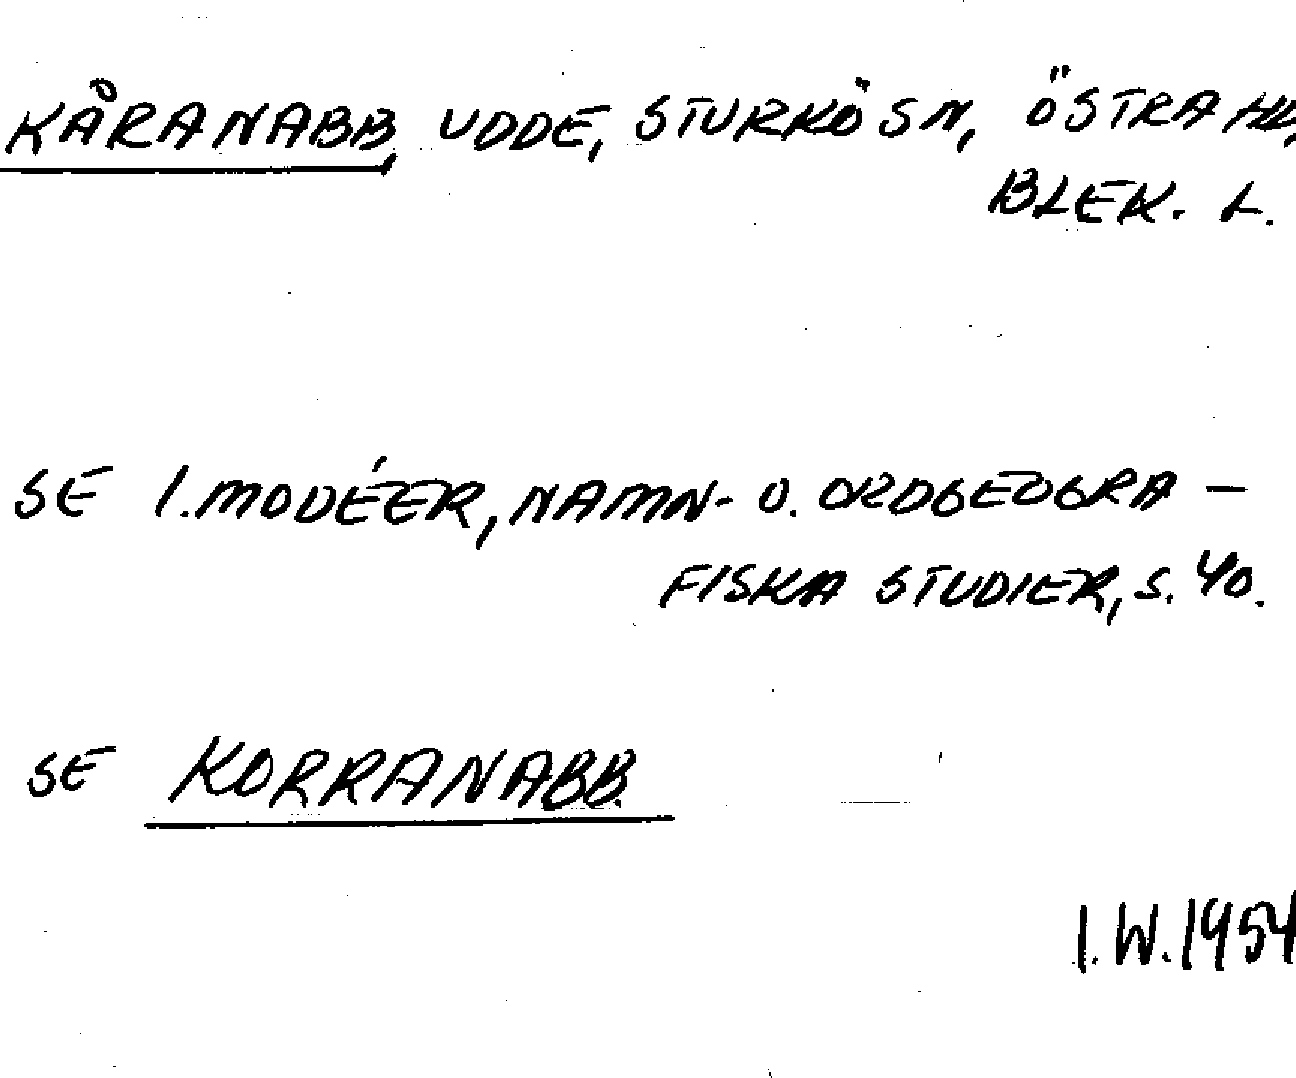 KÅRANABB, UDDE, STURKÖ SN, ÖSTRA HD,
BLEK. L.
SE I. MODÉER, NAMN- O. ORDGEOGRA-
FISKA STUDIER, S. 40.
SE KORRANABB.
I.W. 1954